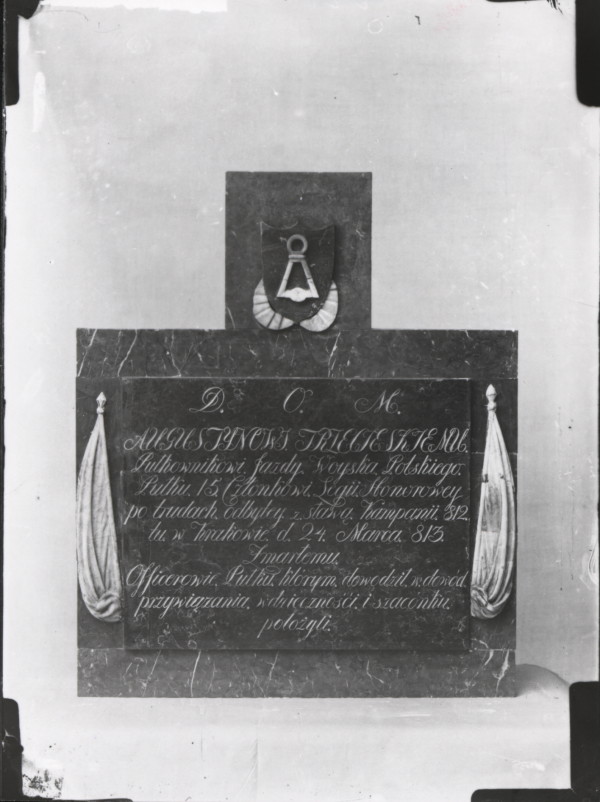 D. O. M.
AUGUSTYNOWI TRZECIESKIEMU.
Pułkownikowi Jazdy Woyska Polskiego.
Pułku 15. Członkowi Legii Honorowey
po trudach odbytey z sławą Kampanii 812
tu w Krakowie d. 24 Marca 813.
Zmarłemu.
Officerowie Pułku którym dowodził, w dowód
przywiązania, wdzięczności, i szacunku
położyli.